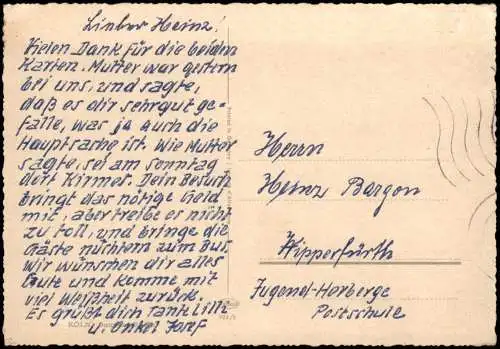 Lieber Heinz!
Vielen Dank für die beiden
Karten. Mutter war gestern
bei uns, und sagte,
daß es dir sehr gut ge-
falle, was ja auch die
Hauptsache ist. Wie Mutter
sagte, sei am sonntag
dort Kirmes. Dein Besuch
bringt das nötige Geld
mit, aber treibe es nicht
zu toll, und bringe die
Gäste nüchtern zum Bus.
Wir wünschen dir alles
Gute und komme mit
viel Weißheit zurück.
Es grüßt dich Tante Lilli
u. Onkel Josef
Herrn
Heinz Bargon
Wipperfürth
Jugend-Herberge
Postschule